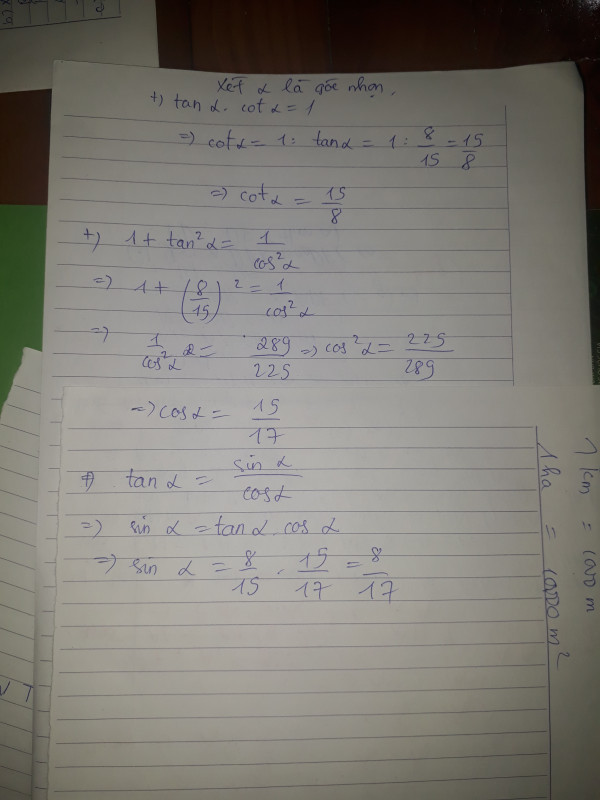 Xét α là góc nhọn.
+) tan α . cot α = 1
=> cot α = 1 : tan α = 1 : 8/15 = 15/8
=> cot α = 15/8
+) 1 + tan²α = 1/cos²α
=> 1 + (8/15)² = 1/cos²α
=> 1/cos²α = 289/225 => cos²α = 225/289
=> cos α = 15/17
+) tan α = sin α/cos α
=> sin α = tan α . cos α
=> sin α = 8/15 . 15/17 = 8/17
1 km = 1000 m
1 ha = 10000 m²